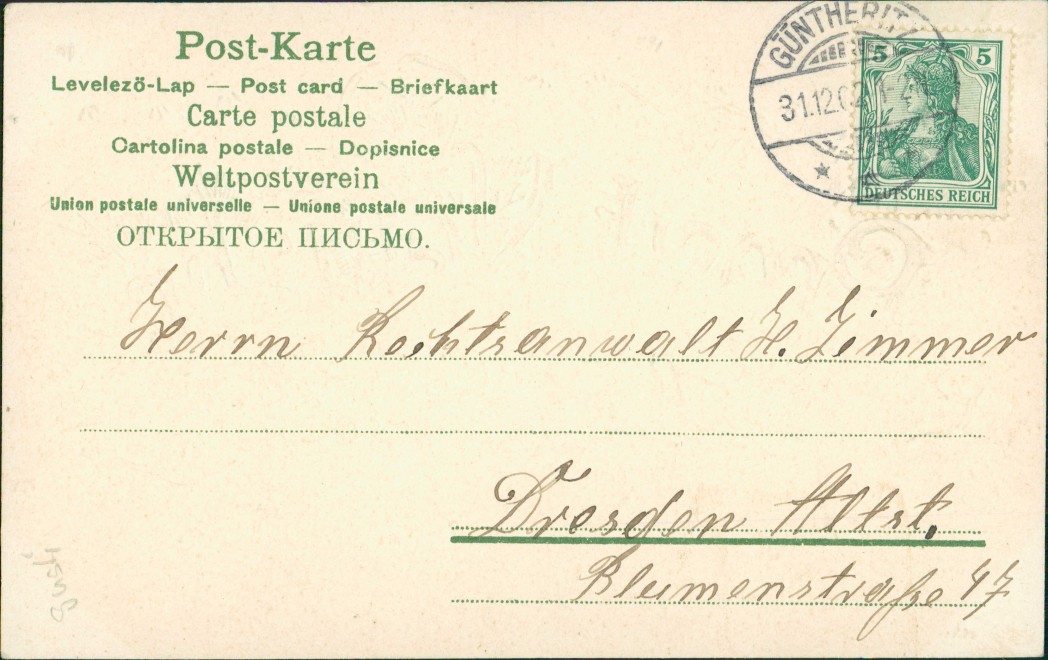 Post-Karte
Levelezö-Lap — Post card — Briefkaart
Carte postale
Cartolina postale — Dopisnice
Weltpostverein
Union postale universelle — Unione postale universale
ОТКРЫТОЕ ПИСЬМО.
GÜNTHERITZ
31.12.02
5 5
DEUTSCHES REICH
Herrn Rechtsanwalt H. Zimmer
Dresden Altst.
Blumenstraße 47